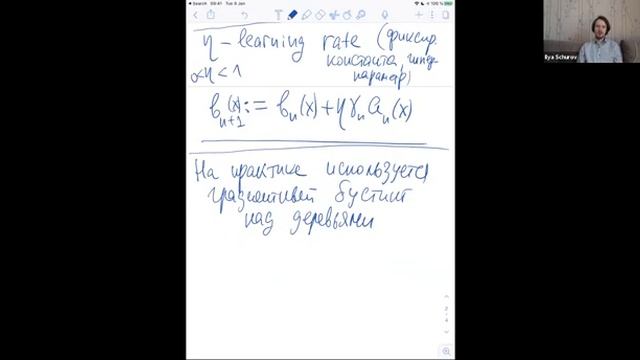 Search 09:41 Tue 9 Jan
100 %
η – learning rate (фиксир.
0<η<1 константа, гипер-
параметр)
b_{n+1}(x) := b_n(x) + η γ_n a_n(x)
На практике используется
градиентный бустинг
над деревьями
Ilya Schurov